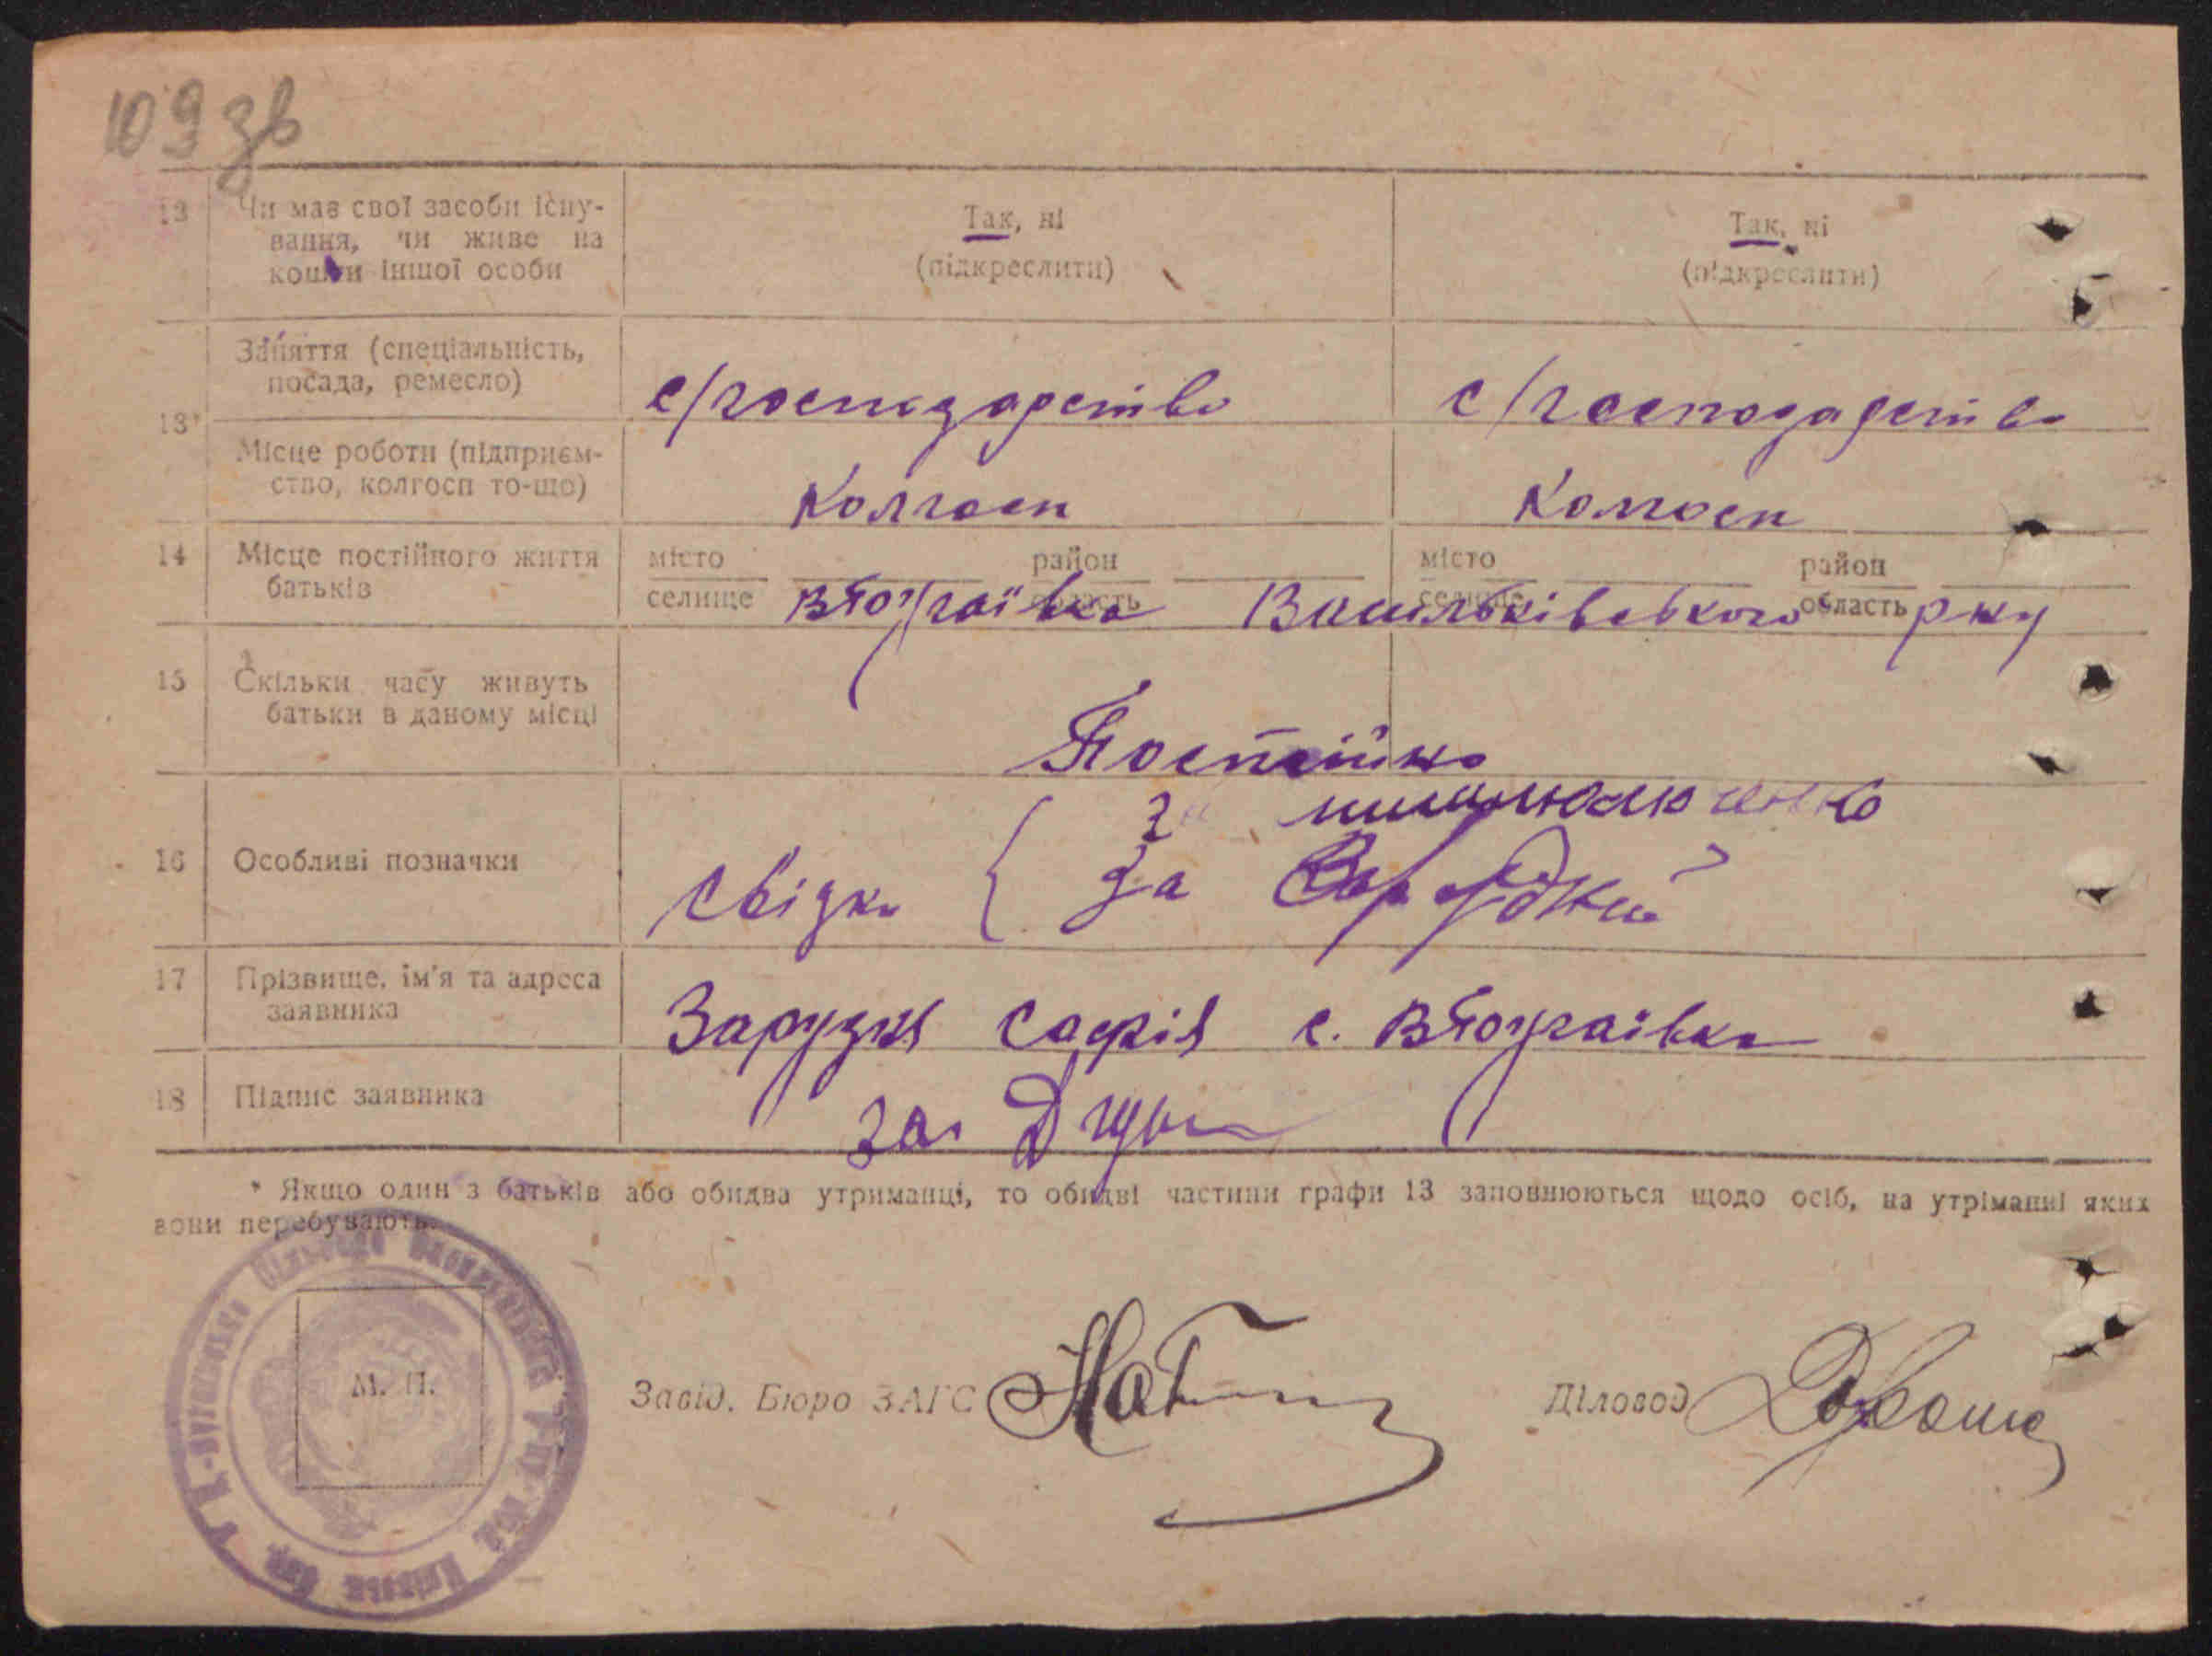 109 зв
13 Чи має свої засоби існу-
вання, чи живе на
кошти іншої особи
Так, ні
(підкреслити)
Так, ні
(підкреслити)
13*
Заняття (спеціальність,
посада, ремесло)
с/господарство
с/господарство
Місце роботи (підприєм-
ство, колгосп то-що)
Колгосп
Колгосп
14 Місце постійного життя
батьків
місто район місто район
селище область селище область
Васильківського р-ну
15 Скільки часу живуть
батьки в даному місці
Постійно
16 Особливі позначки
Свідки
за
17 Прізвище, ім'я та адреса
заявника
Зарудня Софія с.
18 Підпис заявника
за
* Якщо один з батьків або обидва утриманці, то обидві частини графи 13 заповнюються щодо осіб, на утріманні яких
вони перебувають.
М. П.
Завід. Бюро ЗАГС
Діловод